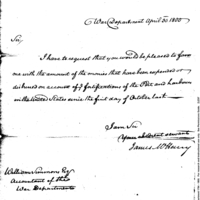 War Department April 30 1800
Sir,
I have to request that you would be pleased to furnish
me with the amount of the monies that have been expended or
disbursed on account of Fortifications of the Port and harbours
in the United States since the first day of October last.
I am Sir
Your obedient servant
James McHenry
William Simmons Esqr
Accountant of the
War Department